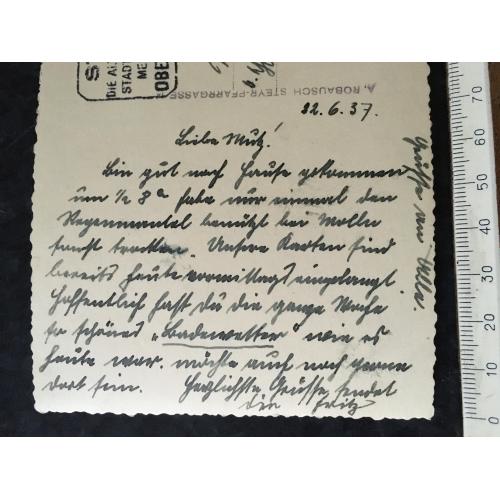 A. ROBAUSCH STEYR-PFARRGASSE
DIE
STADT
OBE
22.6.37.
Liebe Mutz!
Bin gut nach Hause gekommen
um ½ 8h habe nur einmal den
Regenmantel benützt bei Molln
sonst trocken. Unsere Karten sind
bereits heute vormittags eingelangt.
Hoffentlich hast Du die ganze Woche
so schönes „Badewetter" wie es
heute war. möchte auch noch gerne
dort sein. Herzlichste Grüsse sendet
die Fritz
Grüsse an Alle.
70
60
50
40
30
20
10
0